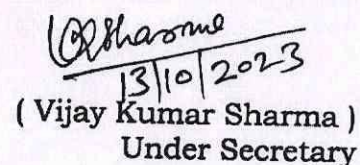 13/10/2023
( Vijay Kumar Sharma )
Under Secretary